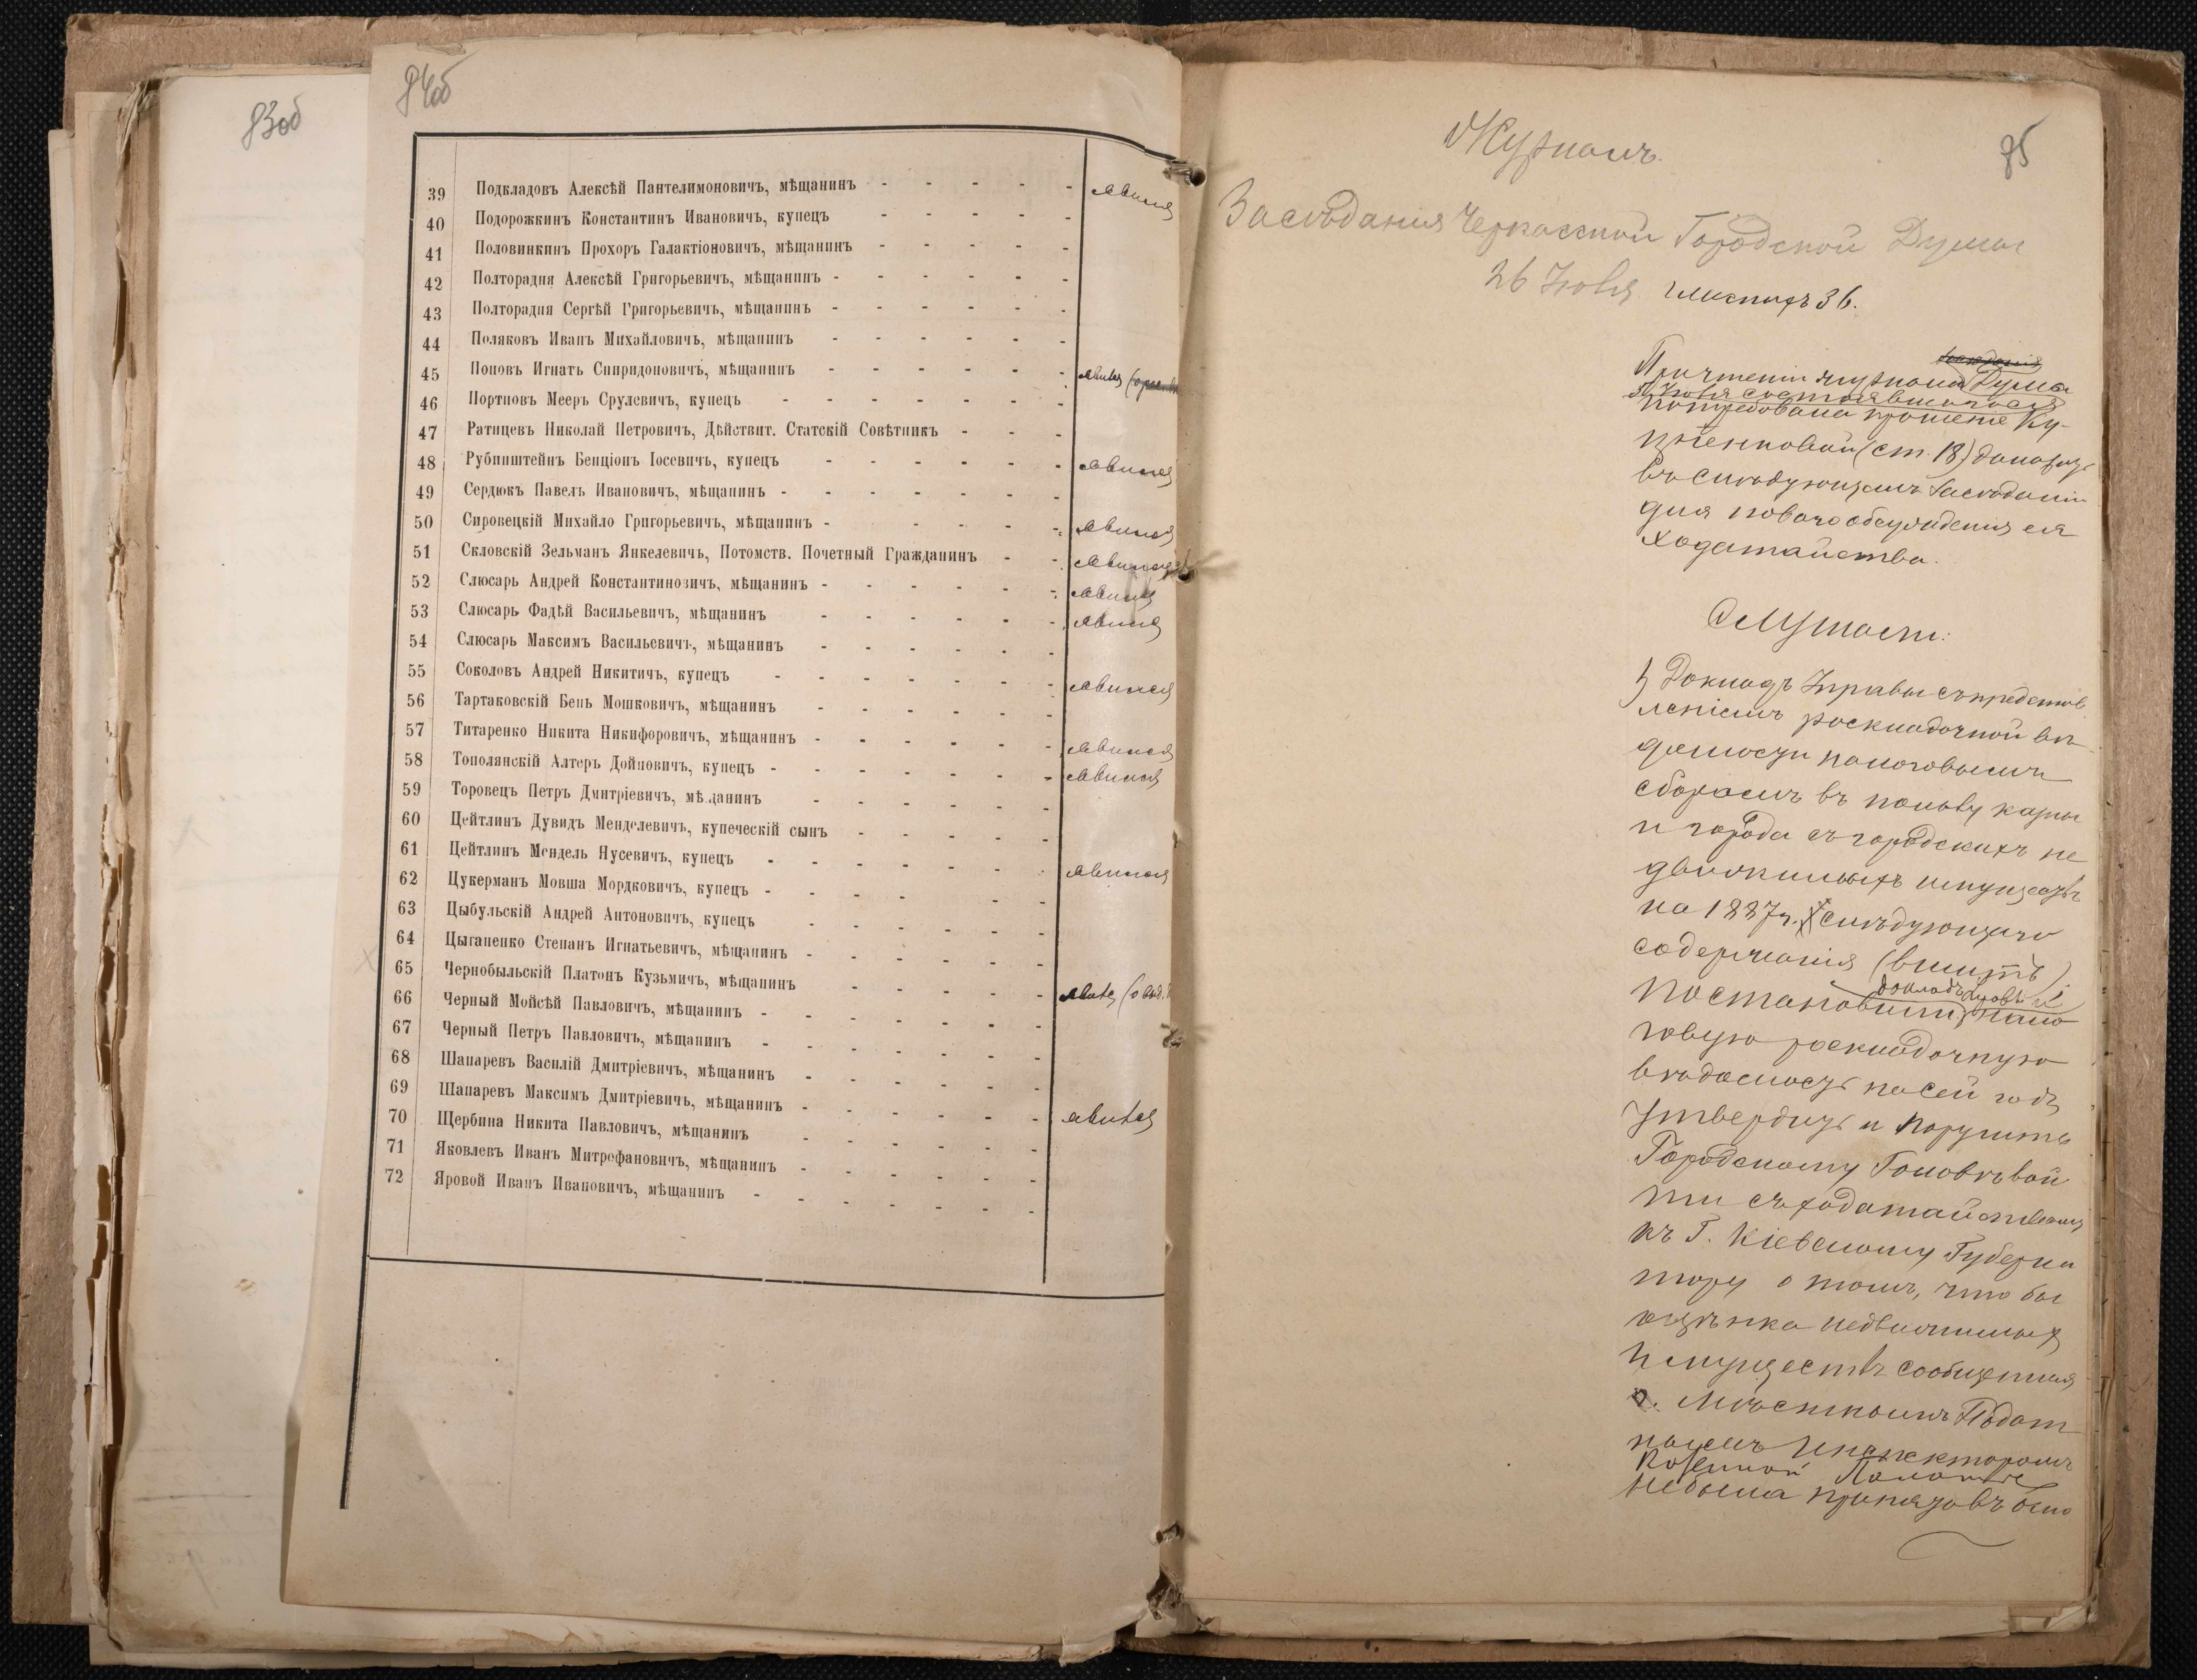 83об
84об
39 Подкладовъ Алексѣй Пантелимоновичъ, мѣщанинъ - - - - - явился
40 Подорожкинъ Константинъ Ивановичъ, купецъ - - - - -
41 Половинкинъ Прохоръ Галактіоновичъ, мѣщанинъ - - - - -
42 Полторадня Алексѣй Григорьевичъ, мѣщанинъ - - - - - -
43 Полторадня Сергѣй Григорьевичъ, мѣщанинъ - - - - - -
44 Поляковъ Иванъ Михайловичъ, мѣщанинъ - - - - - -
45 Поповъ Игнатъ Спиридоновичъ, мѣщанинъ - - - - - - явился
46 Портновъ Мееръ Срулевичъ, купецъ - - - - - - -
47 Ратицевъ Николай Петровичъ, Дѣйствит. Статскій Совѣтникъ - - -
48 Рубинштейнъ Бенціонъ Іосевичъ, купецъ - - - - - - явился
49 Сердюкъ Павелъ Ивановичъ, мѣщанинъ - - - - - - -
50 Сировецкій Михайло Григорьевичъ, мѣщанинъ - - - - - явился
51 Скловскій Зельманъ Янкелевичъ, Потомств. Почетный Гражданинъ - - явился
52 Слюсарь Андрей Константиновичъ, мѣщанинъ - - - - - - явился
53 Слюсарь Фадѣй Васильевичъ, мѣщанинъ - - - - - - явился
54 Слюсарь Максимъ Васильевичъ, мѣщанинъ - - - - - -
55 Соколовъ Андрей Никитичъ, купецъ - - - - - - - явился
56 Тартаковскій Бень Мошковичъ, мѣщанинъ - - - - - -
57 Титаренко Никита Никифоровичъ, мѣщанинъ - - - - - - явился
58 Тополянскій Алтеръ Дойновичъ, купецъ - - - - - - - явился
59 Торовецъ Петръ Дмитріевичъ, мѣщанинъ - - - - - -
60 Цейтлинъ Дувидъ Менделевичъ, купеческій сынъ - - - - -
61 Цейтлинъ Мендель Нусевичъ, купецъ - - - - - - - явился
62 Цукерманъ Мовша Мордковичъ, купецъ - - - - - - -
63 Цыбульскій Андрей Антоновичъ, купецъ - - - - - -
64 Цыганенко Степанъ Игнатьевичъ, мѣщанинъ - - - - - -
65 Чернобыльскій Платонъ Кузьмичъ, мѣщанинъ - - - - - - явился
66 Черный Мойсѣй Павловичъ, мѣщанинъ - - - - - - -
67 Черный Петръ Павловичъ, мѣщанинъ - - - - - - -
68 Шапаревъ Василій Дмитріевичъ, мѣщанинъ - - - - - -
69 Шапаревъ Максимъ Дмитріевичъ, мѣщанинъ - - - - - - явился
70 Щербина Никита Павловичъ, мѣщанинъ - - - - - -
71 Яковлевъ Иванъ Митрофановичъ, мѣщанинъ - - - - - -
72 Яровой Иванъ Ивановичъ, мѣщанинъ - - - - - - -
85
Журналъ
Засѣданія Черкасской Городской Думы
26 Іюня гласныхъ 36.
При чтеніи журнала Думы
Іюня состоявшагося
потребована прошеніе Ку-
(ст. 18) доложить
въ слѣдующемъ Засѣданіи
для новаго обсужденія ея
ходатайства.
Слушали:
1) Докладъ Управы съ представ
леніемъ раскладочной вѣ-
домости налоговымъ
сборамъ въ пользу казны
и города съ городскихъ не
движимыхъ имуществъ
на 1887 г. слѣдующаго
содержанія
докладъ
Постановили: нало
говую раскладочную
вѣдомость на сей годъ
утвердить и поручить
Городскому Головѣ вой
ти съ ходатайствомъ
къ Г. Кіевскому Губерна
тору о томъ, что бы
оцѣнка недвижимыхъ
имуществъ сообщенная
Мѣстнымъ Подат
нымъ Инспекторомъ
Казенной Палатѣ
небыла